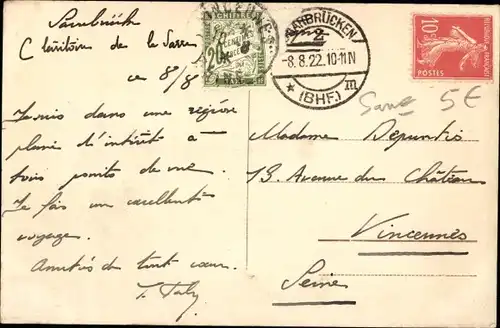 Sarrebrück
(Territoire de la Sarre
ce 8/8
Je suis dans une région
pleine d'intérêt à
trois points de vue.
Je fais un excellent
voyage.
Amitiés de tout cœur.
CHIFFRE
SAARBRÜCKEN
-8.8.22.10-11N
* (BHF.) m
10c
POSTES
Sarre 5€
Madame Depuntis
13. Avenue du Château
Vincennes
Seine